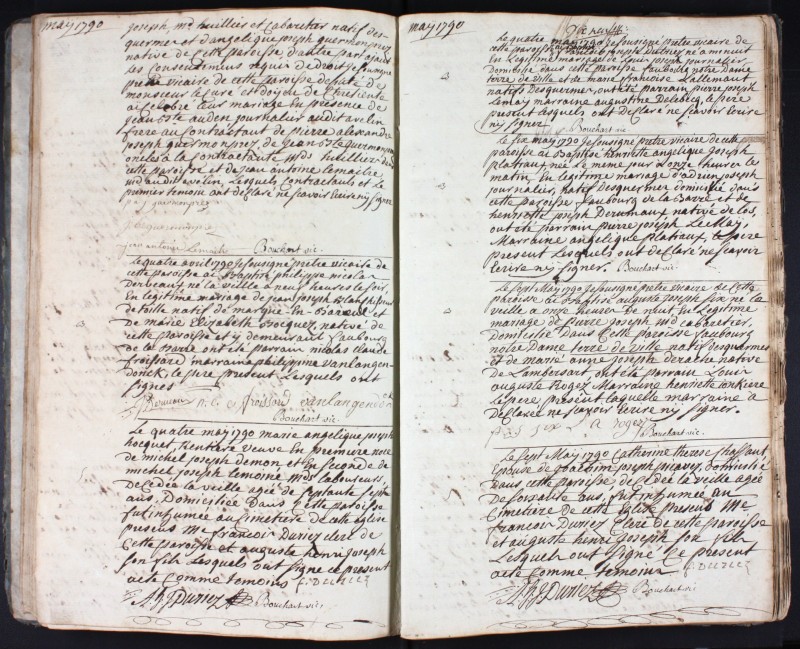 may 1790
joseph, md huillier et cabaretier natif des-
quermes et d'angelique joseph quermonprez
native de cette paroisse d'autre part ayant
les consentemens requis de droit je soussigné
prêtre vicaire de cette paroisse
monsieur le curé et doyen de chretienté
ai célébré leur mariage en presence de
jean bte auden journalier audit avelin
frere au contractant de pierre alexandre
joseph quermonprez, de jean bte quermonprez
oncles à la contractante mds huilliers de
cette paroisse et de jean antoine lemaitre
md audit avelin, lesquels contractants et le
premier temoin ont declaré ne scavoir ecrire ny signer
p a j quermonprez
jbquermonprez
jean antoine Lemaitre Bouchart vic.
le quatre avril 1790 je soussigné prêtre vicaire de
cette paroisse ai Baptisé philippe nicolas
derbeau né la veille a neuf heures le soir,
En legitime mariage de jean joseph
de toille natif de marque-En-Baroeul et
de marie Elizabeth Brocquez, native de
cette paroisse et y demeurant fauxbourg
de la Barre ont eté parrain nicolas claude
froissard marraine philippine vanlangen-
donck, le pere present lesquels ont
signés
n. c. froissard vanlangendonck
Bouchart vic.
le quatre may 1790 marie angelique joseph
hocquet, Rentiere veuve En premiere noce
de michel joseph demon et En seconde de
michel joseph lemoine mds laboureurs,
decédée la veille agée de septante sept
ans, Domiciliée dans cette paroisse
fut inhumée au cimetiere de cette eglise
presens Me francois Duriez clerc de
cette paroisse et auguste henri joseph
son fils lesquels ont signé ce present
acte comme temoins f. Duriez
AHJDuriez Bouchart vic.
may 1790
le quatre may 1790 je soussigné prêtre vicaire de
cette paroisse ai Baptisé né a minuit
En legitime mariage de Louis joseph journalier
Domicilié dans cette paroisse fauxbourg notre Dame
terre de ville et de marie francoise Lallemant
natifs Desquermes, ont eté parrain pierre joseph
Lemay marraine augustine Delebecq, le pere
present lesquels ont declaré ne scavoir ecrire
ny signer. Bouchart vic
le six may 1790 je soussigné prêtre vicaire de cette
paroisse ai Baptisé henriette angelique joseph
platiaux née le meme jour a onze heures les
matin En legitime mariage d'adrien joseph
journalier, natif Desquermes domicilié dans
cette paroisse fauxbourg de la Barre et de
henriette joseph Derumaux native de los,
ont eté parrain pierre joseph Le May,
Marraine angelique platiaux, le pere
present Lesquels ont declaré ne scavoir
Ecrire ny signer. Bouchart vic.
le sept May 1790 je soussigné prêtre vicaire de cette
paroisse ai Baptisé auguste joseph six né la
veille a onze heures de nuit En legitime
mariage de pierre joseph md cabaretier,
Domicilié Dans cette paroisse fauxbourg
notre Dame terre de ville natif desquermes
et de marie anne joseph derache native
de Lambersart ont eté parrain Louis
auguste Rogez Marraine henriette
le pere present laquelle marraine a
Declaré ne scavoir Ecrire ny signer.
p j six L A Rogez
Bouchart vic.
le sept May 1790 Catherine therese Chaffaut
Epouse de joachim joseph Domiciliée
Dans cette paroisse decédée la veille agée
de soixante ans, fut inhumée au
cimetiere de cette Eglise presens Me
francois Duriez clerc de cette paroisse
et auguste henri joseph son fils
Lesquels ont signé ce present
acte comme temoins f. Duriez
AHJDuriez Bouchart vic